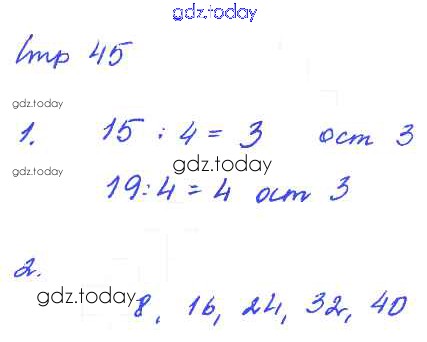 gdz.today
Стр 45
gdz.today
1. 15 : 4 = 3 ост 3
gdz.today
gdz.today
19 : 4 = 4 ост 3
2.
gdz.today
8, 16, 24, 32, 40